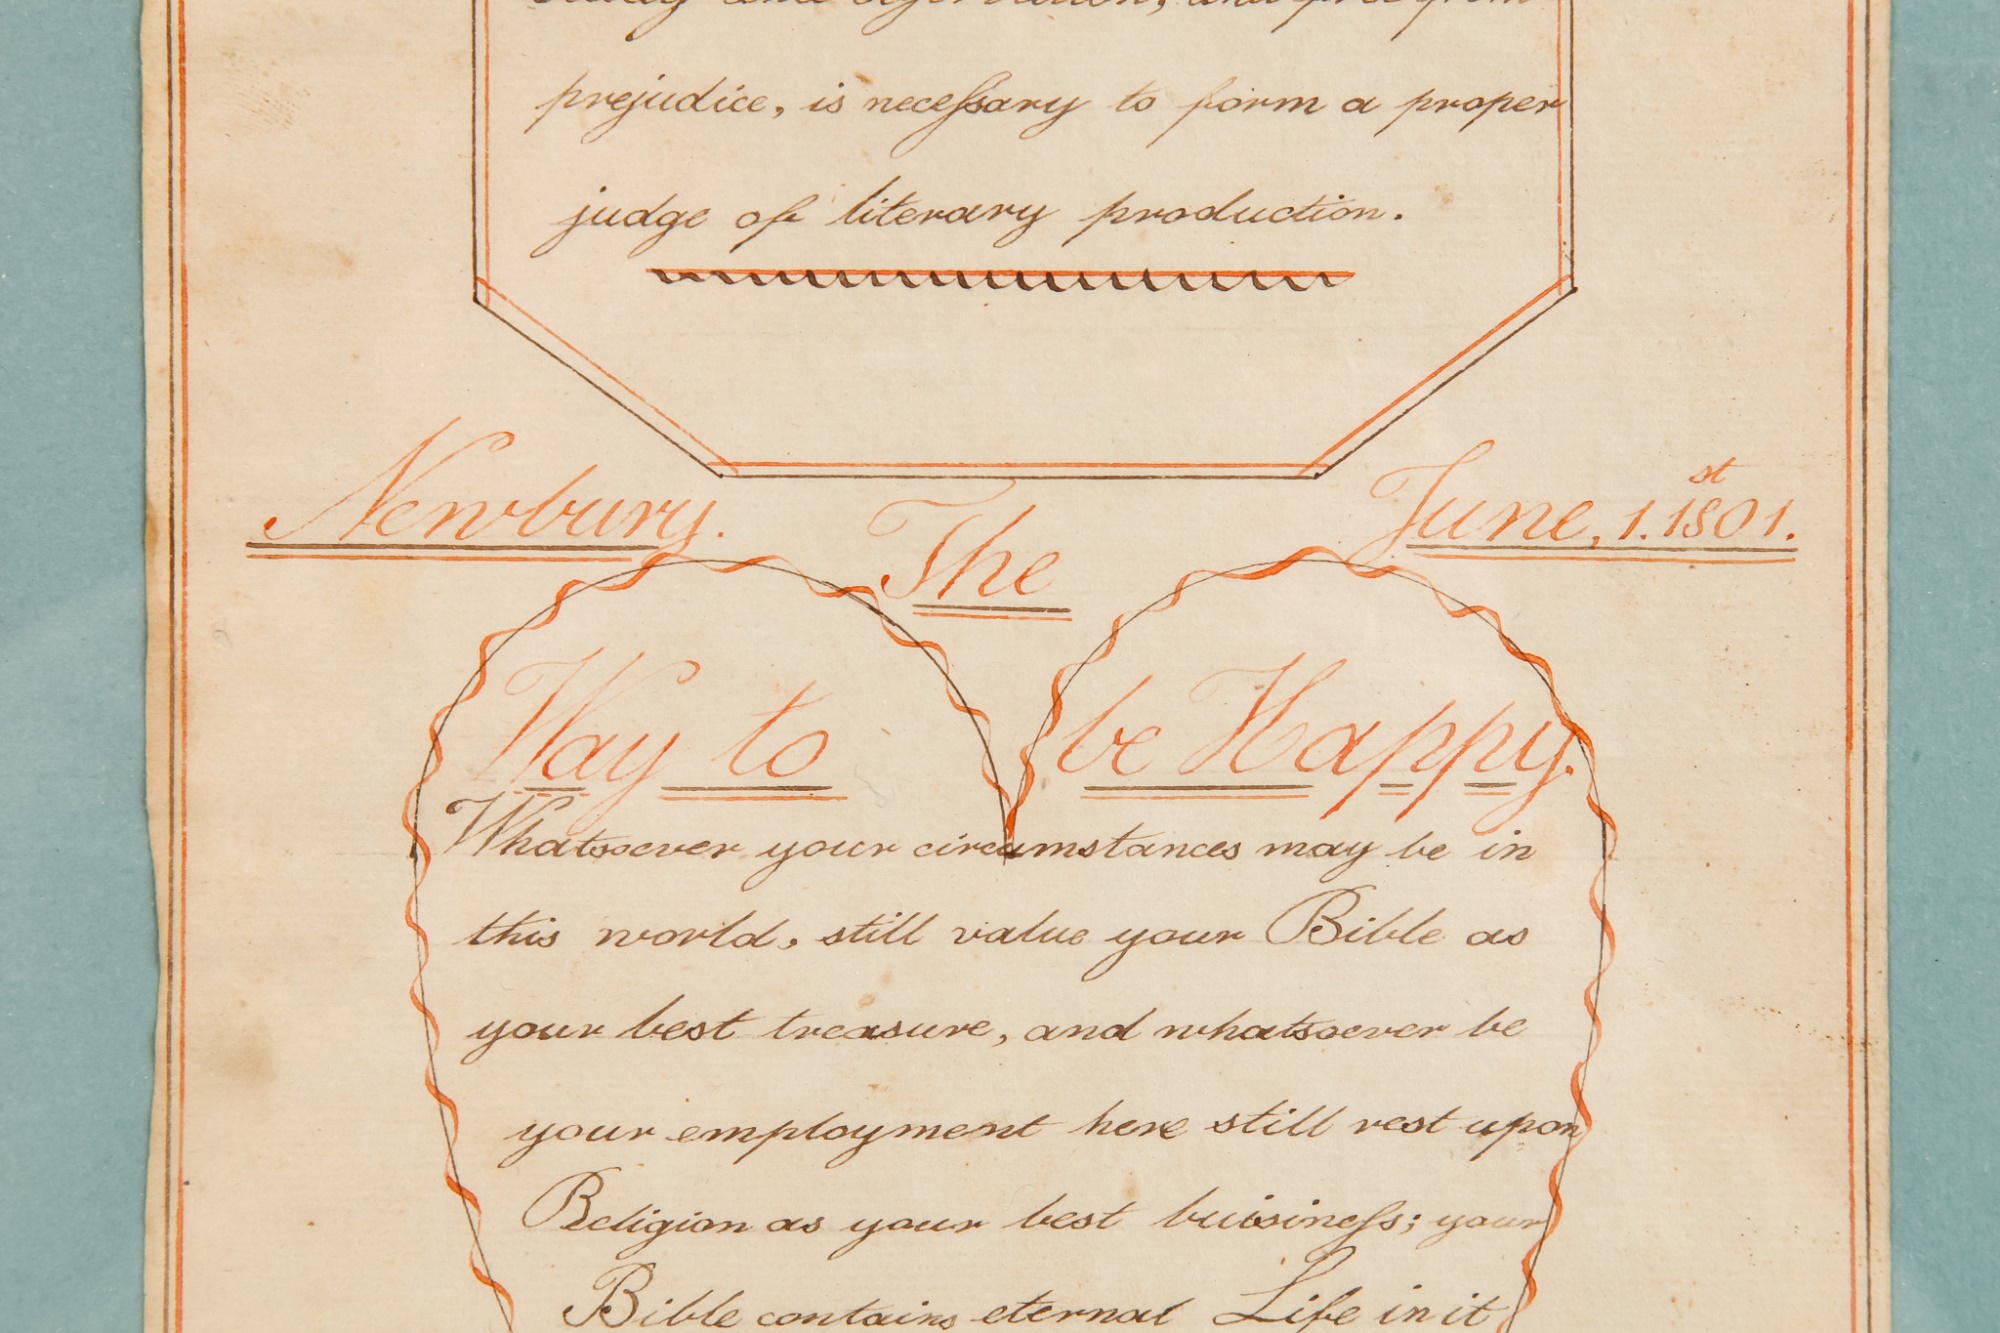 and observation, and free from
prejudice, is neceſsary to form a proper
judge of literary production.
Newbury. The June, 1.st 1801.
Way to be Happy.
Whatsoever your circumstances may be in
this world, still value your Bible as
your best treasure, and whatsoever be
your employment here still rest upon
Religion as your best buisineſs; your
Bible contains eternal Life in it